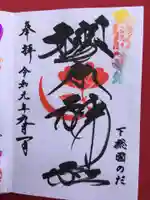 下総國のだ
櫻木神社
奉拝 令和元年 月一日